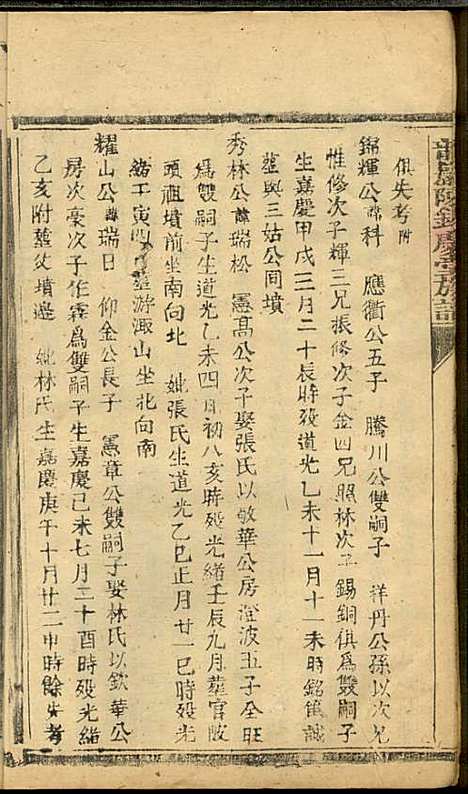 俱失考附
錫輝公諱科　應衢公五子　騰川公雙嗣子　祥丹公孫以次兄
惟修次子輝三兄振修次子金四兄照林次子錫銅俱為雙嗣子
生嘉慶甲戌三月二十辰時歿道光乙未十一月十一未時銘篋誠
塟與三姑公同墳
秀林公諱瑞松　憲高公次子娶張氏以敬華公房澄波五子全旺
為雙嗣子生道光乙未四月初八亥時歿光緒壬辰九月塟官陂
頭祖墳前坐南向北　妣張氏生道光乙巳正月廿一巳時歿光
緒壬寅四　塟游諏山坐北向南
耀山公諱瑞日　仰金公長子　憲章公雙嗣子娶林氏以欽華公
房次豪次子作霖為雙嗣子生嘉慶己未七月三十酉時歿光緒
乙亥附塟父墳邊　妣林氏生嘉慶庚午十月廿二申時餘失考
慶堂族譜